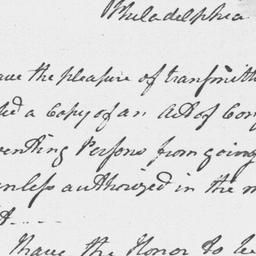 Philadelphia
ave the pleasure of transmitt
ed a Copy of an Act of Con
venting Persons from going
unless authorized in the m
t
I have the Honor to be